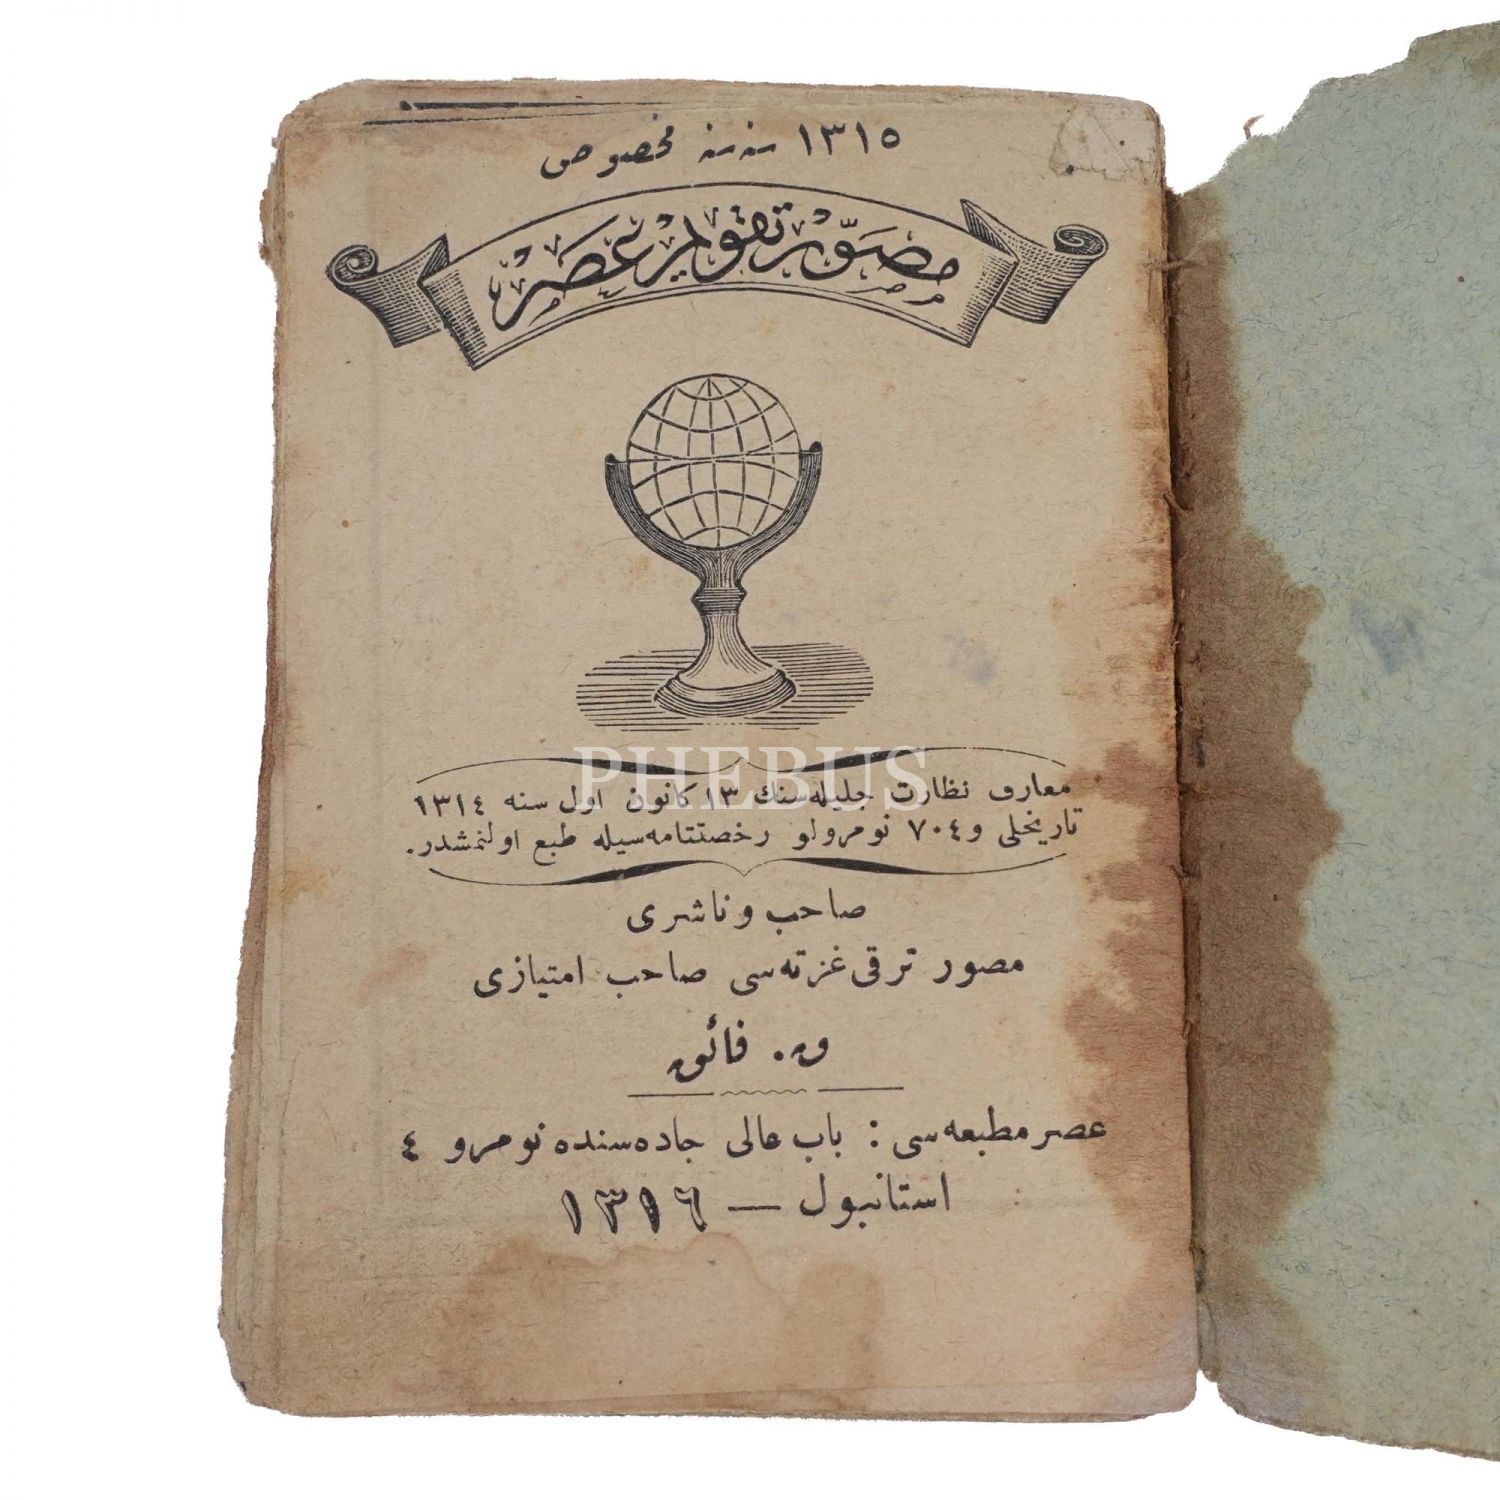 ١٣١٥ سنه سنه مخصوص
مصوّر تقويم عصر
معارف نظارت جليله سنك ١٣ كانون اول سنه ١٣١٤
تاريخلى و ٧٠٤ نومرولو رخصتنامه سيله طبع اولنمشدر.
صاحب و ناشرى
مصور ترقى غزته سى صاحب امتيازى
و. فائق
عصر مطبعه سى : باب عالى جاده سنده نومرو ٤
استانبول — ١٣١٦
PHEBUS